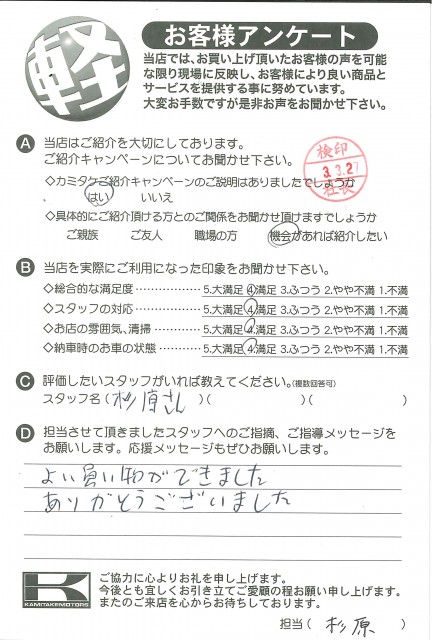 軽
お客様アンケート
当店では、お買い上げ頂いたお客様の声を可能
な限り現場に反映し、お客様により良い商品と
サービスを提供する事に努めています。
大変お手数ですが是非お声をお聞かせ下さい。
A 当店はご紹介を大切にしております。
ご紹介キャンペーンについてお聞かせ下さい。
検印
3.3.27
社長
◇カミタケご紹介キャンペーンのご説明はありましたでしょうか
、 はい いいえ
◇具体的にご紹介頂ける方とのご関係をお聞かせ頂けますでしょうか
ご親族 ご友人 職場の方 機会があれば紹介したい
B 当店を実際にご利用になった印象をお聞かせ下さい。
◇総合的な満足度 ‥‥‥‥‥‥ 5.大満足 4.満足 3.ふつう 2.やや不満 1.不満
◇スタッフの対応 ‥‥‥‥‥‥ 5.大満足 4.満足 3.ふつう 2.やや不満 1.不満
◇お店の雰囲気、清掃 ‥‥‥‥ 5.大満足 4.満足 3.ふつう 2.やや不満 1.不満
◇納車時のお車の状態 ‥‥‥‥ 5.大満足 4.満足 3.ふつう 2.やや不満 1.不満
C 評価したいスタッフがいれば教えてください。(複数回答可)
スタッフ名 ( 杉原さん )( )( )
D 担当させて頂きましたスタッフへのご指摘、ご指導メッセージを
お願いします。応援メッセージもぜひお願いします。
よい買い物ができました
ありがとうございました
K
KAMITAKEMOTORS
ご協力に心よりお礼を申し上げます。
今後とも宜しくお引き立てご愛顧の程お願い申し上げます。
またのご来店を心からお待ちしております。
担当 ( 杉原 )